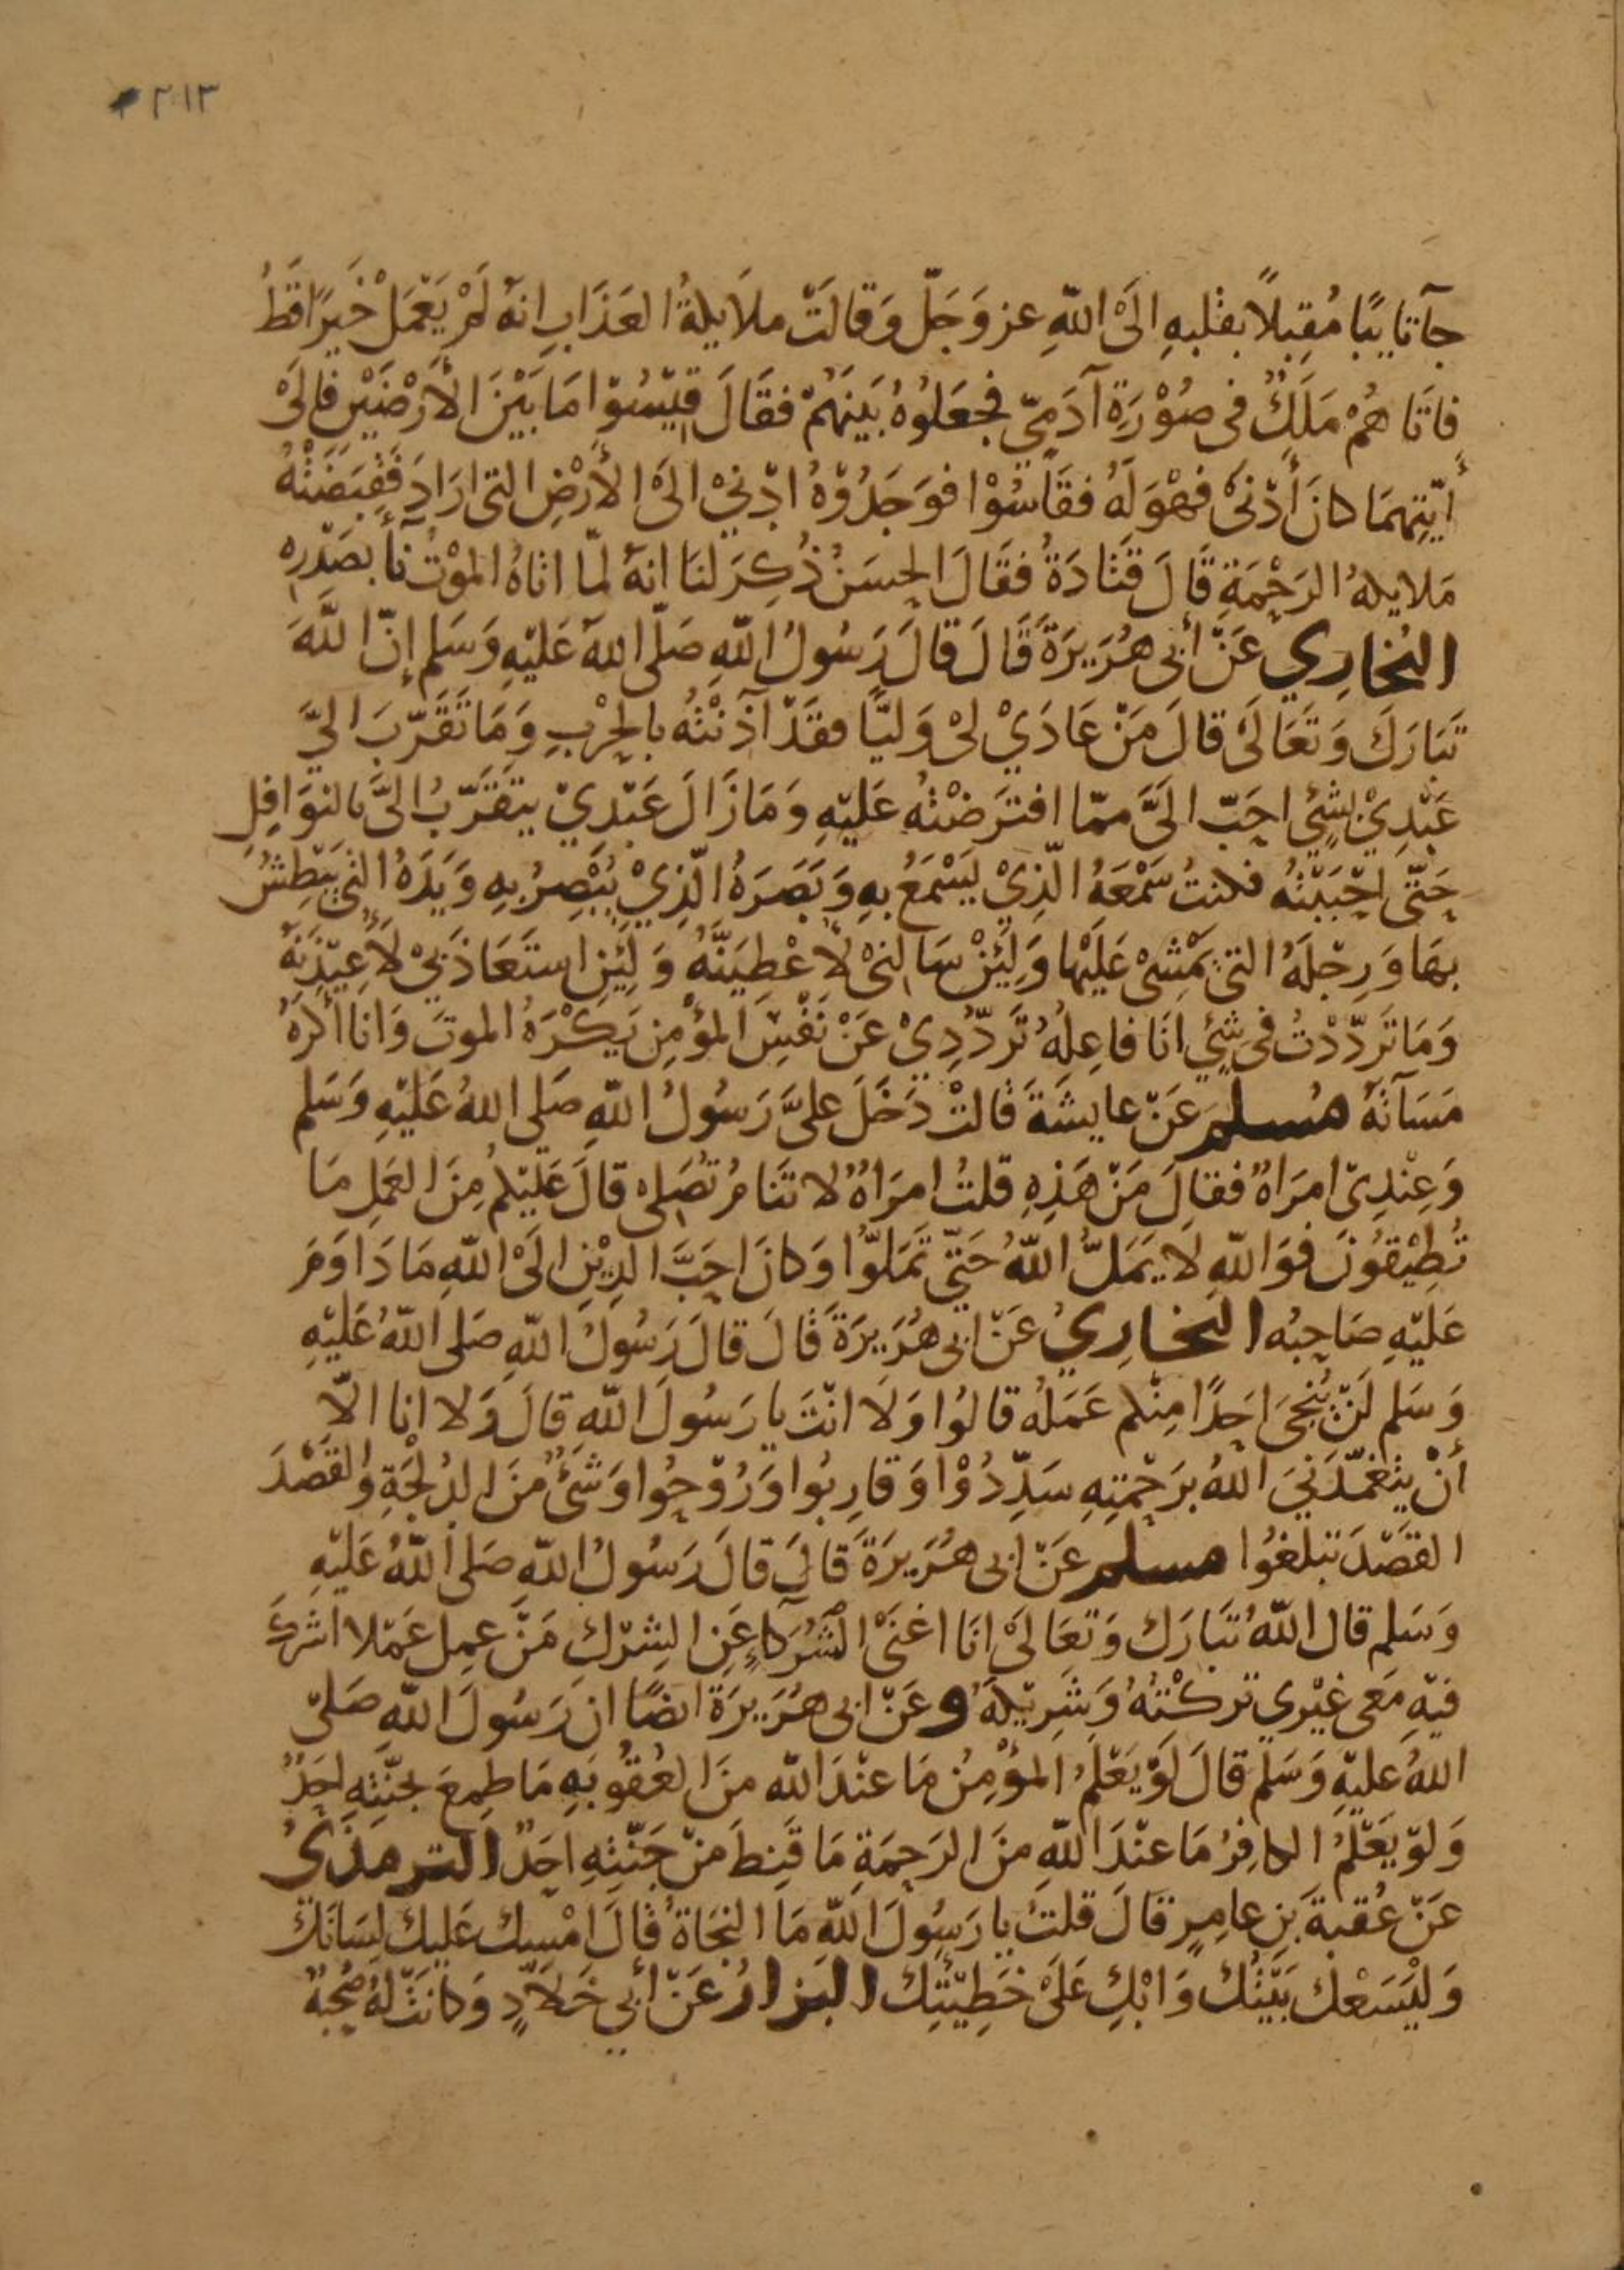 ٢١٣
جآ تايبًا مُقبِلاً بقلبهِ الَى اللهِ عز وَجَلّ وَقالَتْ ملايكةُ العَذَابِ انهُ لَمْ يَعْمَلْ خَيرًا قَطُ
فاتَا هُمْ مَلَكٌ فى صُوْرَةِ آدَمِىّ فجعَلُوهُ بَينَهُمْ فقَالَ قِيْسُوْا مَا بَيْنَ الأَرْضَيْنِ فالَى
أيّتِهمَا كانَ أَدْنَى فهْوَ لَهُ فقَاسُوْا فوَجَدُوْهُ ادْنَى الَى الأَرْضِ التى ارَادَ فَقَبَضَتْهُ
مَلايكهُ الرَحْمَةِ قَالَ قَتَادَةُ فقَالَ الحسَنُ ذُكِرَ لنَا انهُ لمّا اتاهُ الموْتُ نآ بصَدْرِهِ
البُخارِي عَنْ أبى هُرَيرَةَ قَالَ قالَ رَسُولُ اللهِ صَلّى اللهُ عَليْهِ وَسَلم إنّ اللهَ
تَبَارَكَ وَتَعَالَى قالَ مَنْ عَادَيْ لىْ وَليًّا فقَدْ آذَنْتُه بالحرْبِ وَمَا تَقَرّبَ اليَّ
عَبْدِيْ بشئٍ احَبّ الَىَّ ممّا افترَضْتُه عَليْهِ وَمَا زَالَ عَبْدِيْ يتقَرّبُ الىَّ بالنوَافِلِ
حَتّى احْبَبْتُه فكنتُ سَمْعَهُ الّذِيْ يَسْمَعُ بهِ وَبَصَرَهُ الّذِيْ يُبْصِرُ بِهِ وَيَدَهُ التى يَبْطِشُ
بهَا وَرِجْلَهُ التى يَمْشىْ عَليْها وَلَئِنْ سَالنىْ لأُعْطِيَنّهُ وَلَئِنِ استَعَاذَبىْ لأُعِيْذَنهُ
وَمَا تَردّدْتُ فى شئٍ انَا فاعِلُهُ تَردّدِىْ عَنْ نَفْسِ المؤمِنِ يَكْرَهُ الموتَ وَانا أكْرَهُ
مَسَآتَهُ مُسلم عَنْ عايشَةَ قالتْ دَخَلَ علىَّ رَسُولُ اللهِ صَلى اللهُ عَليْهِ وَسَلم
وَعِنْدِىْ امرَاهٌ فقالَ مَنْ هَذِهِ قلتُ امرَاهٌ لا تنَامُ تُصَلى قالَ عَليْكُمُ مِنَ العَمَلِ مَا
تُطِيْقُونَ فوَ اللهِ لَا يَمَلُّ اللهُ حَتّى تَمَلّوُا وَكانَ احَبَّ الدِيْنِ الَىْ اللهِ مَا دَاوَمَ
عَليْهِ صَاحِبُه البُخارِيُ عَنْ ابى هُرَيرَةَ قَالَ قالَ رَسُولُ اللهِ صَلى اللهُ عَليْهِ
وَسَلم لَنْ يُنْجىَ احَدًا مِنْكم عَمَلُهُ قالُوا وَلَا انْتَ يا رَسُولَ اللهِ قالَ وَلا انا الّا
أنْ يتَغَمّدَنىَ اللهُ برَحْمَتِهِ سَدِّدُوْا وَقارِبُوا وَرُوْحُوا وَشَئٌ مُنَ الدُلْجَةِ وَالقَصْدَ
القَصْدَ تبلغوُا مسلم عَنْ ابى هُرَيرَةَ قالَ قالَ رَسُولُ اللهِ صَلى اللهُ عَليْهِ
وَسَلم قال اللهُ تَبَارَكَ وَتعَالَىْ انَا اغنَىْ الشُرَكآءِ عَنِ الشِرْك مَنْ عمِل عَمَلا اشركَ
فيْهِ مَعى غيْري تركْتُهُ وَشَرِيْكَهُ وعَنْ ابى هُرَيرَةَ ايضًا ان رَسُولَ اللهِ صَلىّ
اللهُ عليْهِ وَسَلم قالَ لَوْ يَعْلَمُ المؤْمِنُ مَا عنْدَ اللهِ منَ العُقُوبَهِ مَا طمِعَ بجنّتِهِ احَدٌ
وَلوْ يَعْلَمُ الكافِرُ مَا عنْدَ اللهِ منَ الرَحمَةِ مَا قَنِطَ منْ جَنّتِهِ احَدٌ الترمذىُ
عَنْ عُقبةَ بنِ عامِرٍ قالَ قلتُ يا رَسُولَ اللهِ مَا النجَاةُ قالَ امْسِك عَليكَ لِسَانَكَ
وَليَسَعْك بَيتُك وَابْكِ عَلَىْ خَطِيْئتِك البَزارُ عَنْ أبي خَلاّدٍ وَكانتْ لهُ صُحْبَهٌ